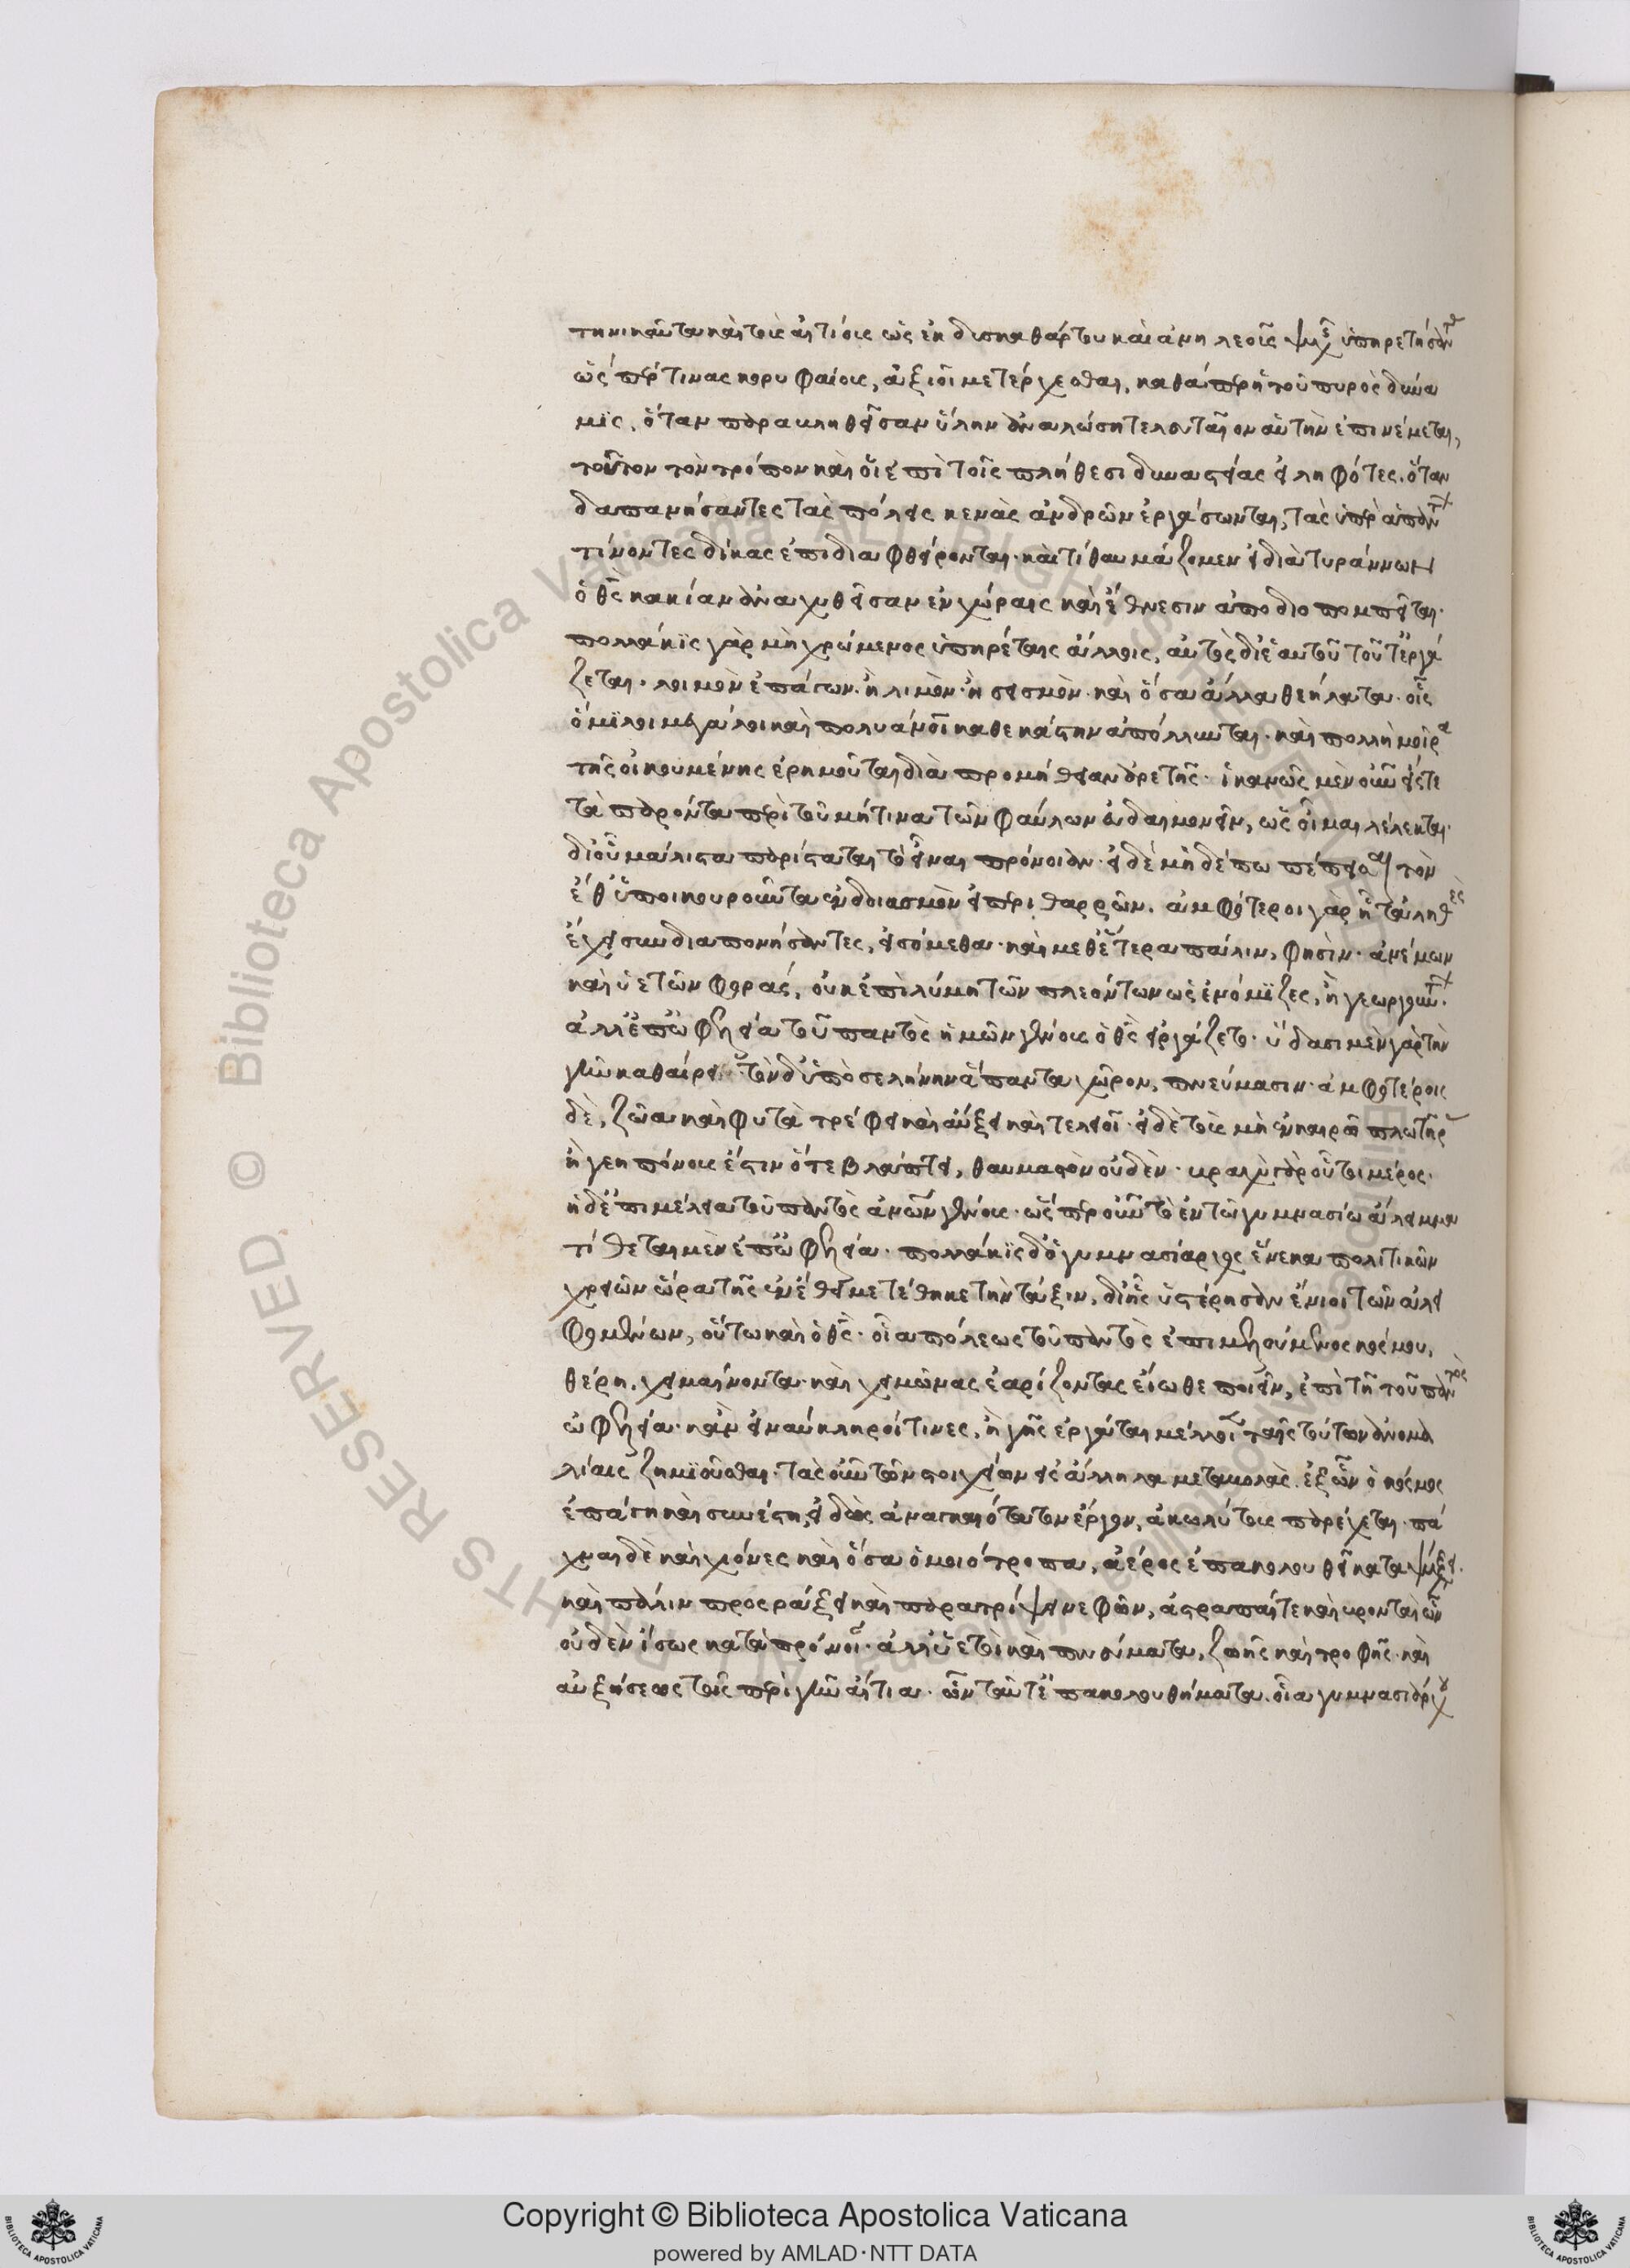 τηνικαῦτα καὶ τοὺς αἰτίους ὡς ἐκ δυσκαθάρτου καὶ ἀνηλεοῖς ψυχῆς ὑπηρετήσαντ
ὥσπέρ τινας κορυφαίους, ἀξιοῖ μετέρχεσθαι, καθάπερ ἡ τοῦ πυρὸς δύνα
μϊς, ὅταν παρακληθεῖσαν ὕλην ἀναλώσῃ τελευταῖον αὐτὴν ἐπινέμεται,
τοῦτον τὸν τρόπον καὶ οἱ ἐπὶ τοῖς πλήθεσι δυναστείας εἰληφότες. ὅταν
δαπανήσαντες τὰς πόλεις κενὰς ἀνδρῶν ἐργάσωνται, τὰς ὑπὲρ ἁπάντων
τίνοντες δίκας ἐπιδιαφθείρονται. καὶ τί θαυμάζομεν εἰ διὰ τυράννων
ὁ θεὸς κακίαν ἀναχυθεῖσαν ἐν χώραις καὶ ἔθνεσιν ἀποδιοπομπεῖται.
πολλάκϊς γὰρ μὴ χρώμενος ὑπηρέταις ἄλλοις, αὐτὸς δι' ἑαυτοῦ τοῦτ' ἐργά
ζεται. λοιμὸν ἐπάγων. ἢ λιμὸν. ἢ σεισμὸν. καὶ ὅσα ἄλλα θεήλατα. οἷς
ὅμϊλοι μεγάλοι καὶ πολυάνθρωποι καθ' ἑκάστην ἀπόλλυνται. καὶ πολλὴ μοῖρα
τῆς οἰκουμένης ἐρημοῦται διὰ προμήθειαν ἀρετῆς. ἱκανῶς μὲν οὖν εἴς τε
τὰ παρόντα περὶ τοῦ μή τινα τῶν φαύλων εὐδαιμονεῖν, ὡς οἶμαι λέλεκται.
δι' οὗ μάλιστα παρίσταται τὸ εἶναι πρόνοιαν. εἰ δὲ μηδέπω πέπεισαι τὸν
ἔθ' ὑποικουροῦντα ἐνδοιασμὸν εἰπὲ θαρρῶν. ἀμφότεροι γὰρ ᾗ τἀληθὲς
ἔχει συνδιαπονήσαντες, εἰσόμεθα. καὶ μεθ' ἕτερα πάλιν, φησὶν. ἀνέμων
καὶ ὑετῶν φορὰς, οὐκ ἐπὶ λύμῃ τῶν πλεόντων ὡς ἐνόμϊζες, ἢ γεωργούντων.
ἀλλ' ἐπ' ὠφελείᾳ τοῦ παντὸς ἡμῶν γένους ὁ θεὸς εἰργάζετο. ὕδασι μὲν γὰρ τὴν
γῆν καθαίρει. τὸν δ' ὑπὸ σελήνην ἅπαντα χῶρον, πνεύμασιν. ἀμφοτέροις
δὲ, ζῶα καὶ φυτὰ τρέφει καὶ αὔξει καὶ τελειοῖ. εἰ δὲ τοὺς μὴ ἐν καιρῷ πλωτῆρας
ἢ γεηπόνους ἔστιν ὅτε βλάπτει, θαυμαστὸν οὐδὲν. βραχὺ γὰρ οὗτοι μέρος.
ἡ δ' ἐπιμέλεια τοῦ παντὸς ἀνθρώπων γένους. ὥσπερ οὖν τὸ ἐν τῷ γυμνασίῳ ἄλειμμα
τίθεται μὲν ἐπ' ὠφελείᾳ. πολλάκϊς δ' ὁ γυμνασίαρχος ἕνεκα πολιτικῶν
χρειῶν ὥρα τῆς ἐν ἔθει μετέθηκε τὴν τάξιν, δι' ἧς ὑστέρησαν ἔνιοι τῶν ἀλει
φομένων, οὕτω καὶ ὁ θεὸς. οἷα πόλεως τοῦ παντὸς ἐπιμελούμενος κόσμου,
θέρη. χειμαίνοντα. καὶ χειμῶνας ἐαρίζοντας εἴωθε ποιεῖν, ἐπὶ τῇ τοῦ παντὸς
ὠφελείᾳ. κἂν εἰ ναύκληροί τινες, ἢ γῆς ἐργάται μέλλοιεν ταῖς τούτων ἀνωμα
λίαις ζημϊοῦσθαι. τὰς οὖν τῶν στοιχείων εἰς ἄλληλα μεταβολὰς. ἐξ ὧν ὁ κόσμος
ἐπάγη καὶ συνέστη, εἰδὼς ἀναγκαιότατον ἔργον, ἀκωλύτους παρέχεται. πά
χναι δὲ καὶ χιόνες καὶ ὅσα ὁμοιότροπα, ἀέρος ἐπακολουθεῖ καταψύξει.
καὶ πάλιν προσράξει καὶ παρατρίψει νεφῶν, ἀστραπαί τε καὶ βρονταὶ ὧν
οὐδὲν ἴσως κατὰ πρόνοιαν. ἀλλ' ὑετοὶ καὶ πνεύματα, ζωῆς καὶ τροφῆς. καὶ
αὐξήσεως τοῖς περὶ γῆν αἴτια. ὧν ταῦτ' ἐπακολουθήματα. οἷα γυμνασιάρχου